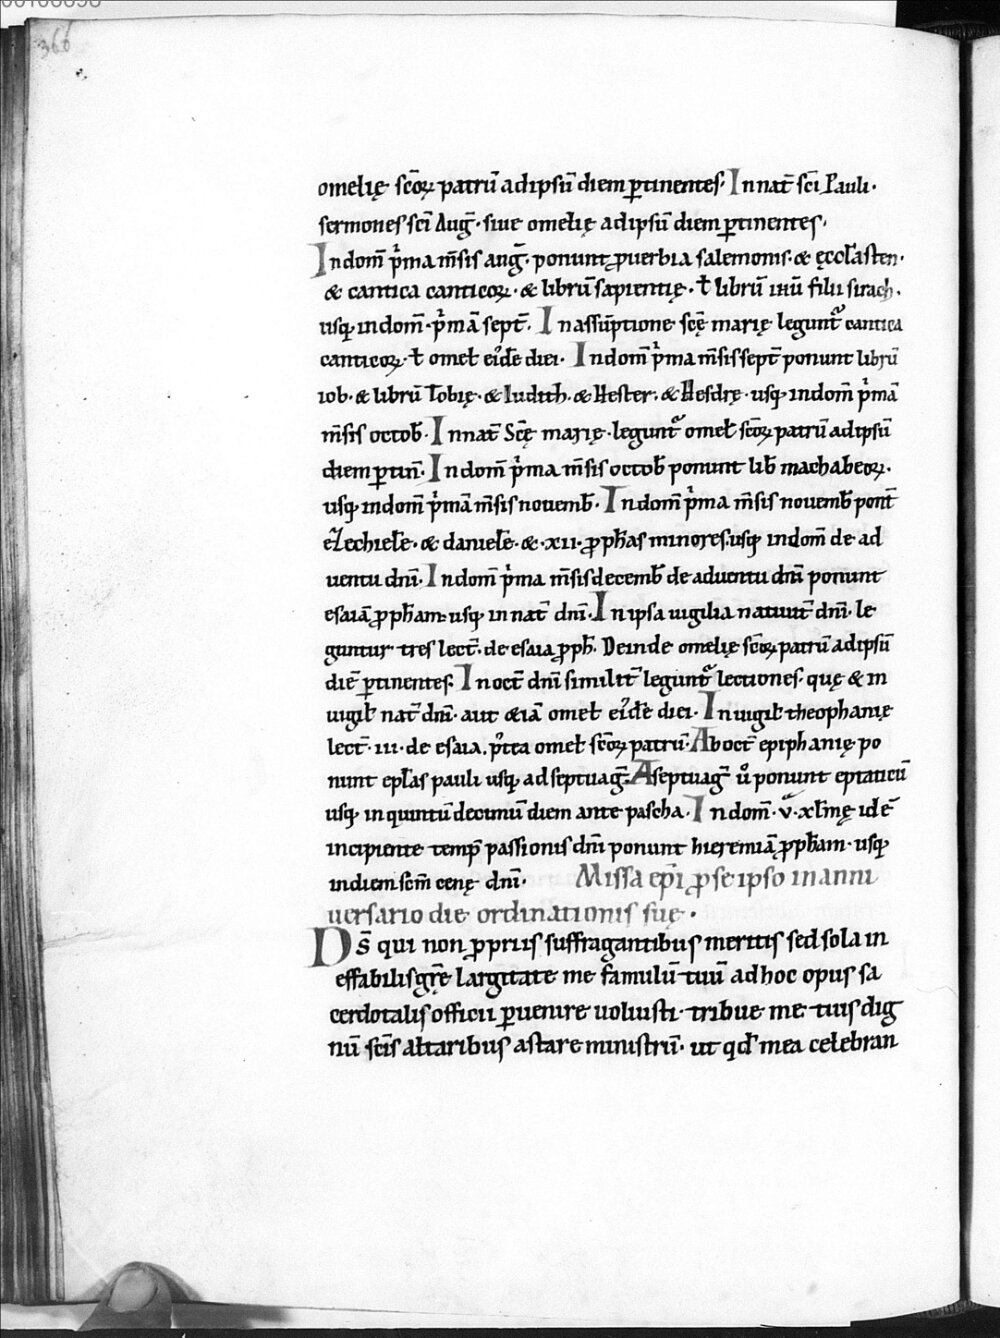 366
omelię scōꝝ patrū ad ipsū diem ꝑtinentes. In nat̄ sc̄i Pauli.
sermones sc̄i Auḡ. siue omelię ad ipsū diem ꝑtinentes.
In dom̄ p̍ma m̄sis auḡ. ponunt ꝓuerbia salemonis. & ęccl̄asten.
& cantica canticoꝝ. & librū sapientię. ł librū ih̄u filii sirach.
usq; in dom̄. p̍mā sept̄. In assūptione sc̄ę marię legunt᷑ cantica
canticoꝝ. ł omel̄ ei᷒dē diei. In dom̄ p̍ma m̄sis sept̄ ponunt librū
iob. & librū Tobię. & Iudith. & Hester. & Hesdrę. usq; in dom̄ p̍mā
m̄sis octob̄. In nat̄ Sc̄ę marię. legunt᷑ omel̄ sc̄oꝝ patrū ad ipsū
diem ꝑtin̄. In dom̄ p̍ma m̄sis octob̄ ponunt lib̄ machabeoꝝ.
usq; in dom̄ p̍mā m̄sis nouemb̄. In dom̄ p̍ma m̄sis nouemb̄ pont̄
eZechiel̄e. & daniel̄e. & .xii. ꝓph̄as minores. usq; in dom̄ de ad
uentu dn̄i. In dom̄ p̍ma m̄sis decemb̄ de aduentu dn̄i ponunt
esaiā ꝓph̄am. usq; in nat̄ dn̄i. In ipsa uigilia natiuit̄ dn̄i. le
guntur tres lect̄. de esaia ꝓph̄. Deinde omelię sc̄oꝝ patrū ad ipsū
diē ꝑtinentes. In oct̄ dn̄i similit̄ legunt᷑ lectiones. quę & in
uigil̄ nat̄ dn̄i. aut &iā omel̄ ei᷒dē diei. In uigil̄ theophanię
lect̄. iii. de esaia. p᷒tea omel̄ sc̄oꝝ patrū. Ab oct̄ epiphanię. po
nunt epl̄as pauli usq; ad septuaḡ. A septuaḡ ů ponunt eptaticū
usq; in quintū decimū diem ante pascha. In dom̄. v̄. xl̄mę idē
incipiente temp̄ passionis dn̄i ponunt hieremiā ꝓph̄am. usq;
in diem sc̄m cenę dn̄i. Missa ep̄i ꝓ se ipso in anni
uersario die ordinationis suę.
Ds̄ qui non ꝓpriis suffragantibus meritis sed sola in
effabilis gr̄ę largitate me famulū tuū ad hoc opus sa
cerdotalis officii ꝑuenire uoluisti. tribue me tuis dig
nū sc̄is altaribus astare ministrū. ut qd̄ mea celebran